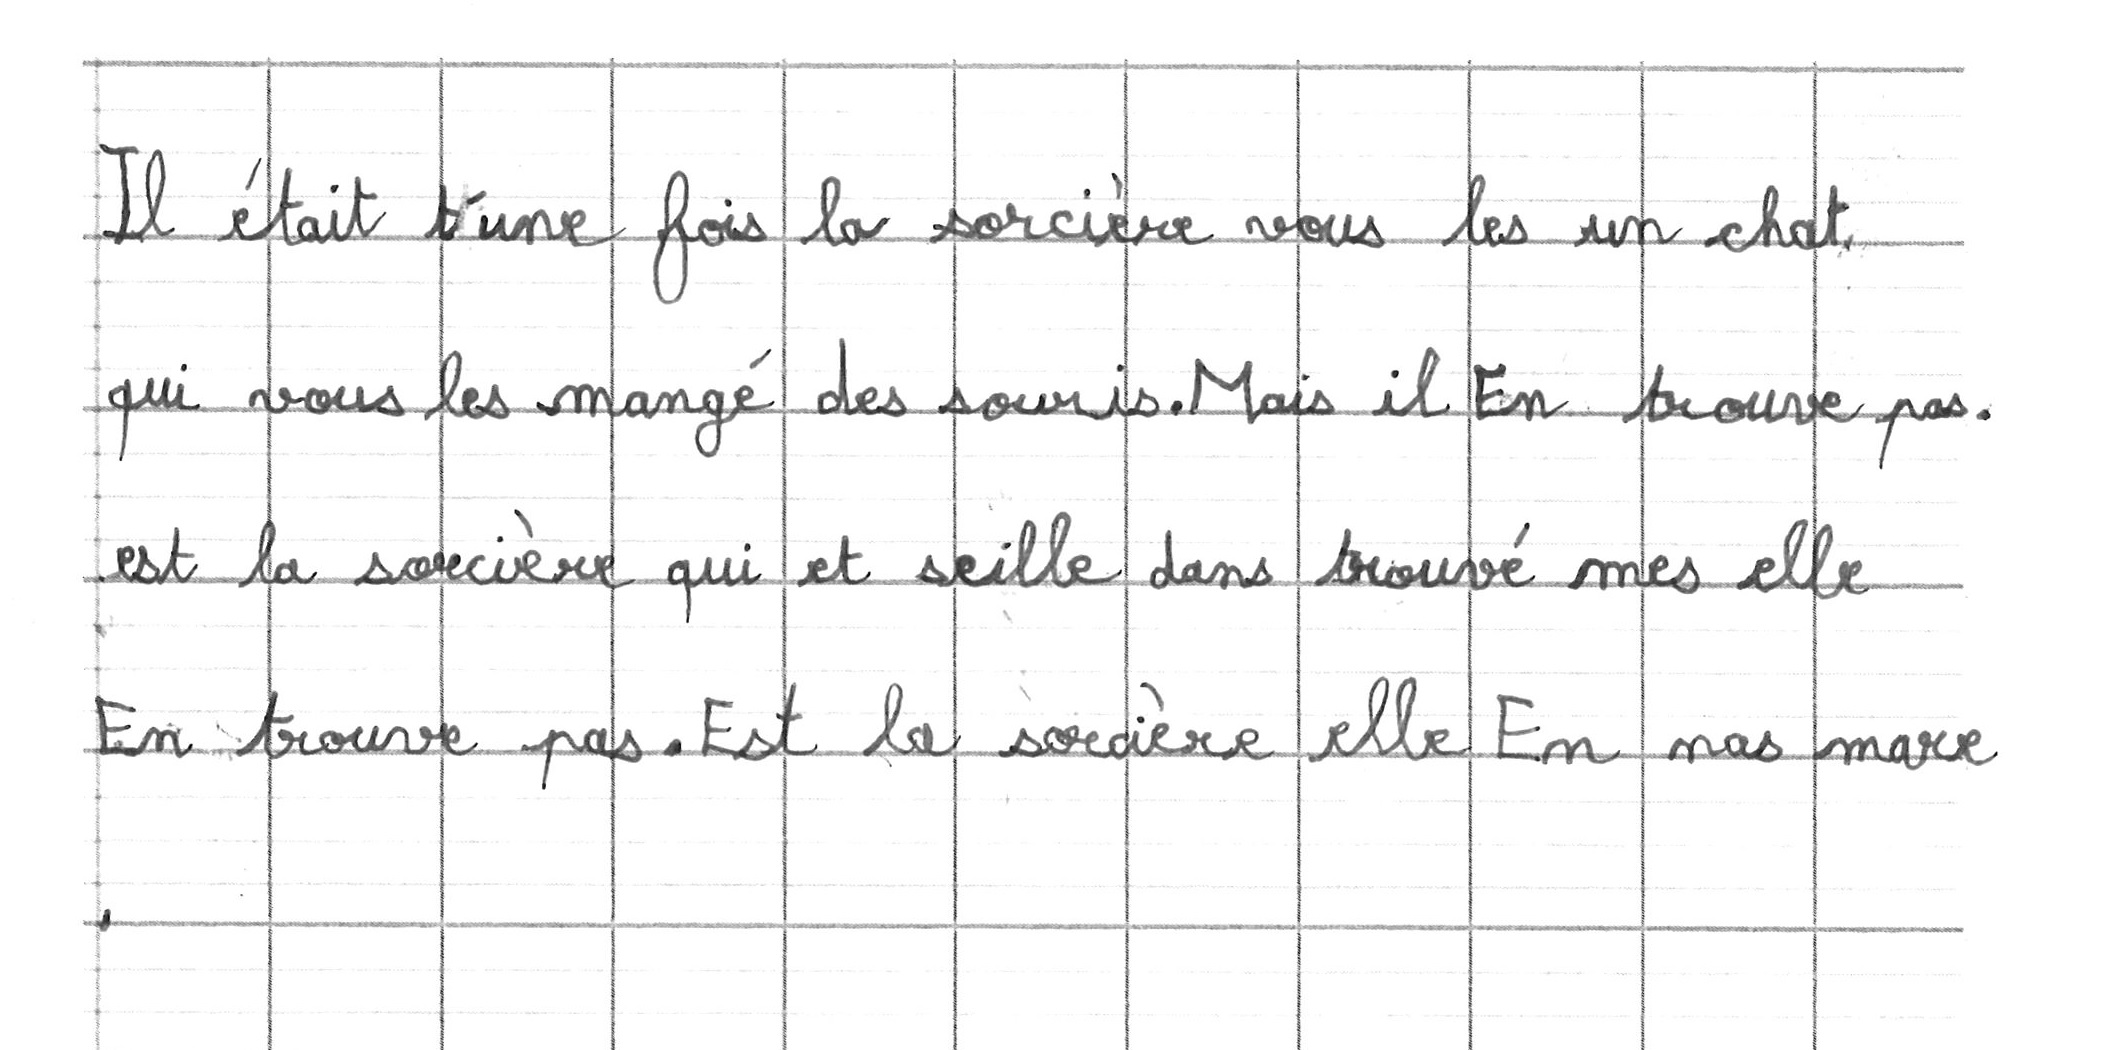 Il était t'une fois la sorcière vous les un chat.
qui vous les mangé des souris. Mais il En trouve pas.
est la sorcière qui et seille dans trouvé mes elle
En trouve pas. Est la sorcière elle En nas mare
.